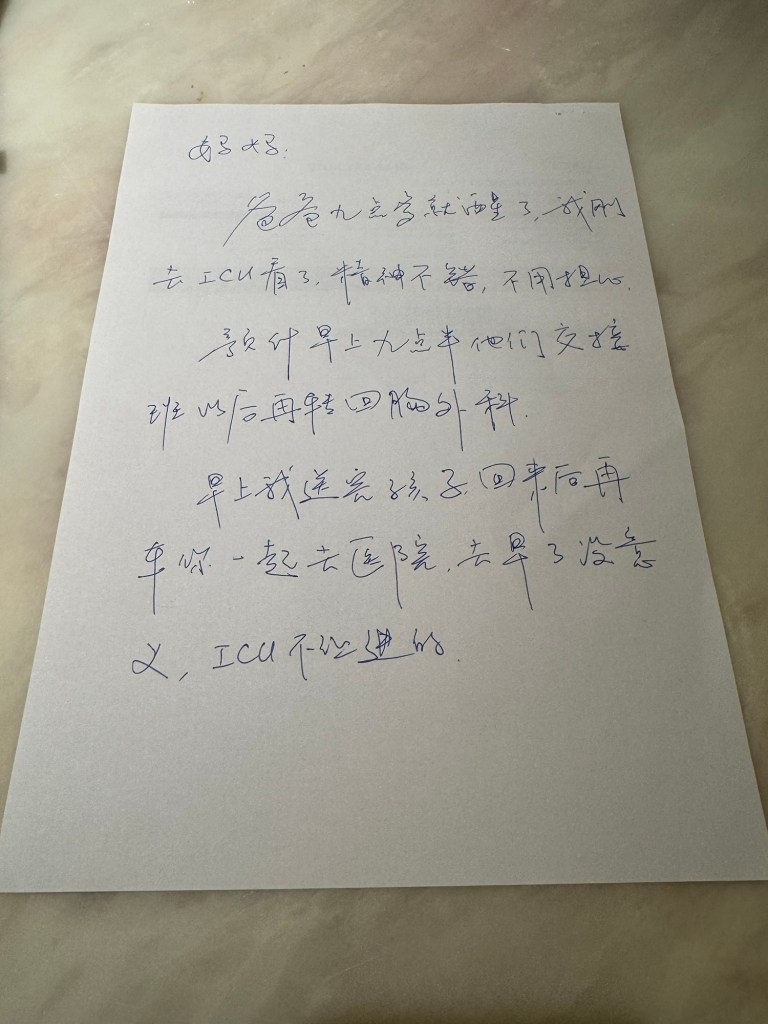 妈妈:
爸爸九点多就醒了,我刚
去ICU看了,精神不错,不用担心.
预计早上九点半他们交接
班以后再转回胸外科.
早上我送完孩子,回来后再
车你一起去医院,去早了没意
义,ICU不让进的.